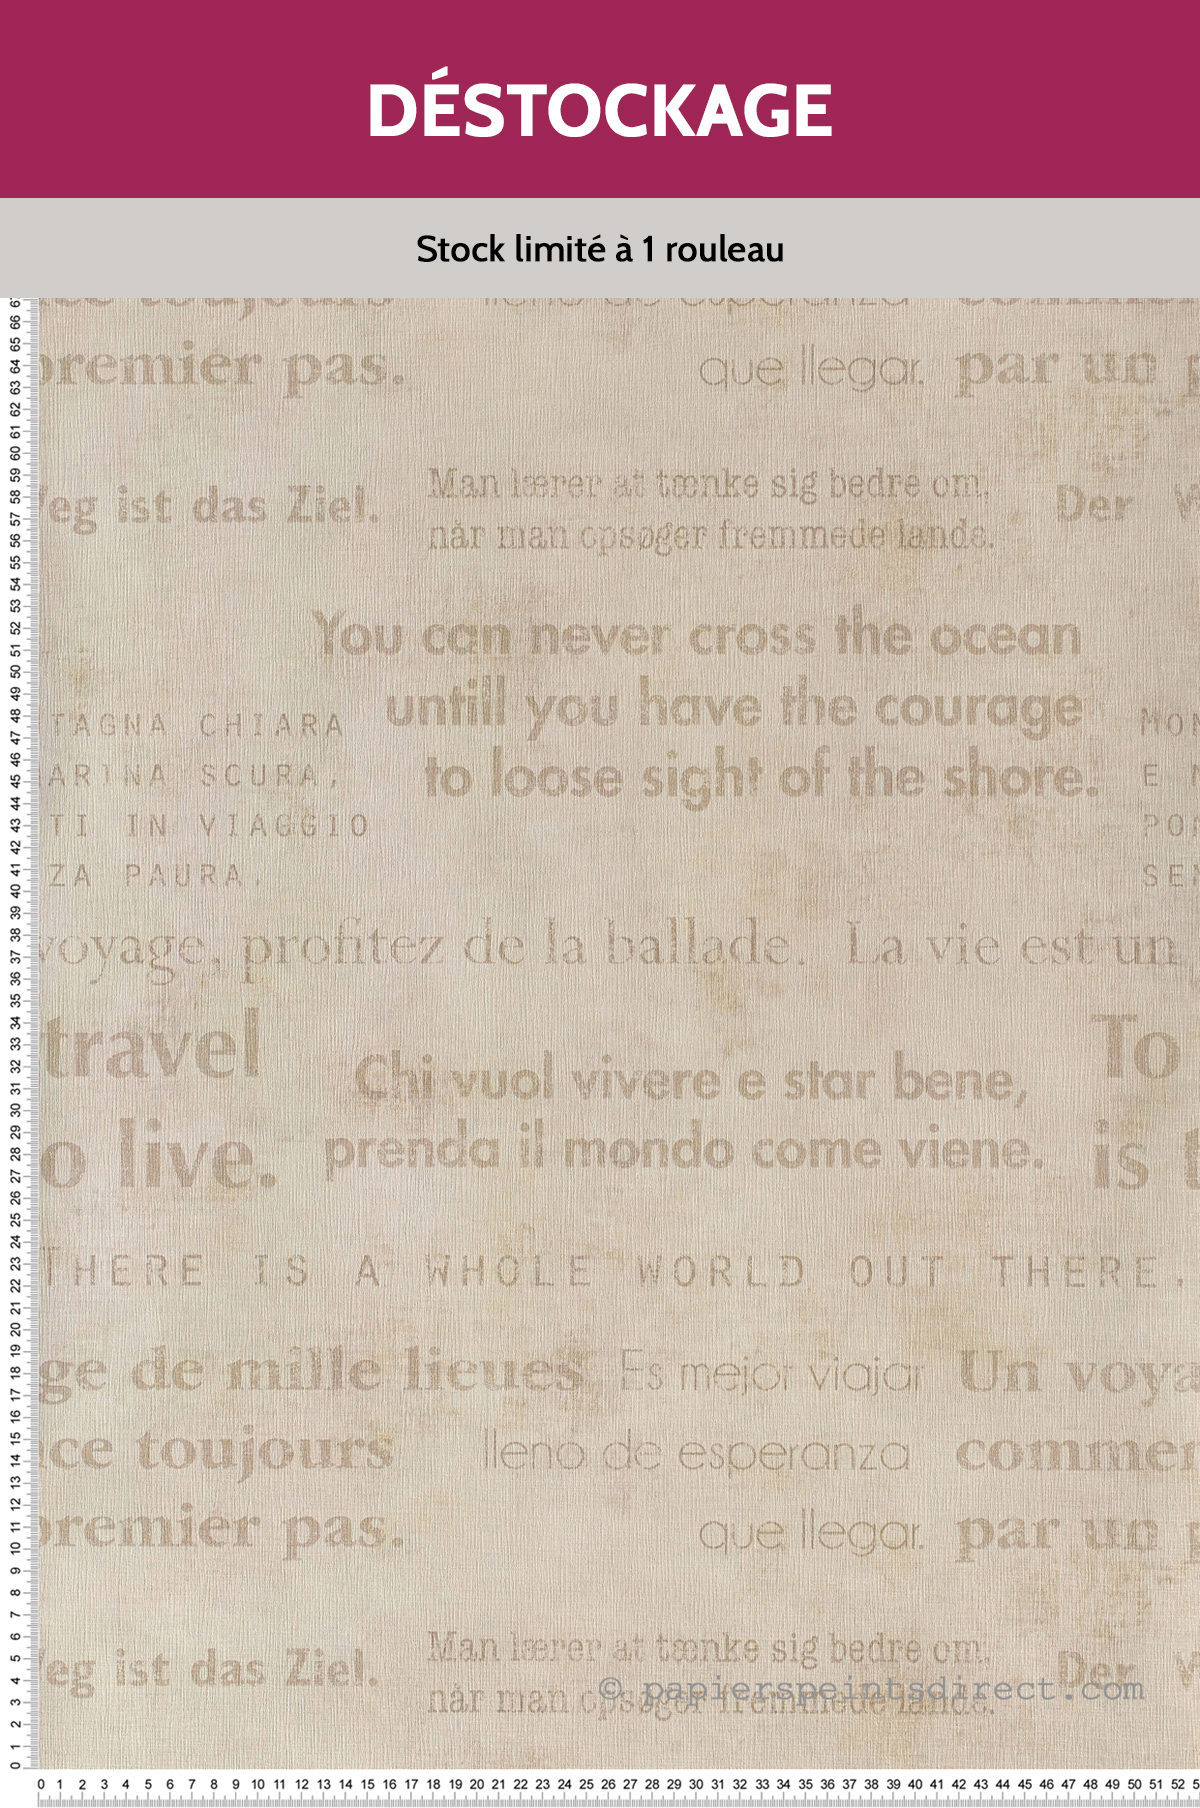 DÉSTOCKAGE
Stock limité à 1 rouleau
toujours lleno de esperanza
premier pas. que llegar. par un p
eg ist das Ziel. Man lærer at tænke sig bedre om, Der W
når man opsøger fremmede lande.
You can never cross the ocean
untill you have the courage
to loose sight of the shore.
TAGNA CHIARA MON
ARINA SCURA, E M
TI IN VIAGGIO POR
ZA PAURA. SEN
voyage, profitez de la ballade. La vie est un
travel To
o live. is t
Chi vuol vivere e star bene,
prenda il mondo come viene.
THERE IS A WHOLE WORLD OUT THERE.
ge de mille lieues Es mejor viajar Un voya
ce toujours lleno de esperanza commen
premier pas. que llegar. par un p
eg ist das Ziel. Man lærer at tænke sig bedre om, Der W
når man opsøger fremmede lande.
© papierspeintsdirect.com
67 66 65 64 63 62 61 60 59 58 57 56 55 54 53 52 51 50 49 48 47 46 45 44 43 42 41 40 39 38 37 36 35 34 33 32 31 30 29 28 27 26 25 24 23 22 21 20 19 18 17 16 15 14 13 12 11 10 9 8 7 6 5 4 3 2 1 0
0 1 2 3 4 5 6 7 8 9 10 11 12 13 14 15 16 17 18 19 20 21 22 23 24 25 26 27 28 29 30 31 32 33 34 35 36 37 38 39 40 41 42 43 44 45 46 47 48 49 50 51 52